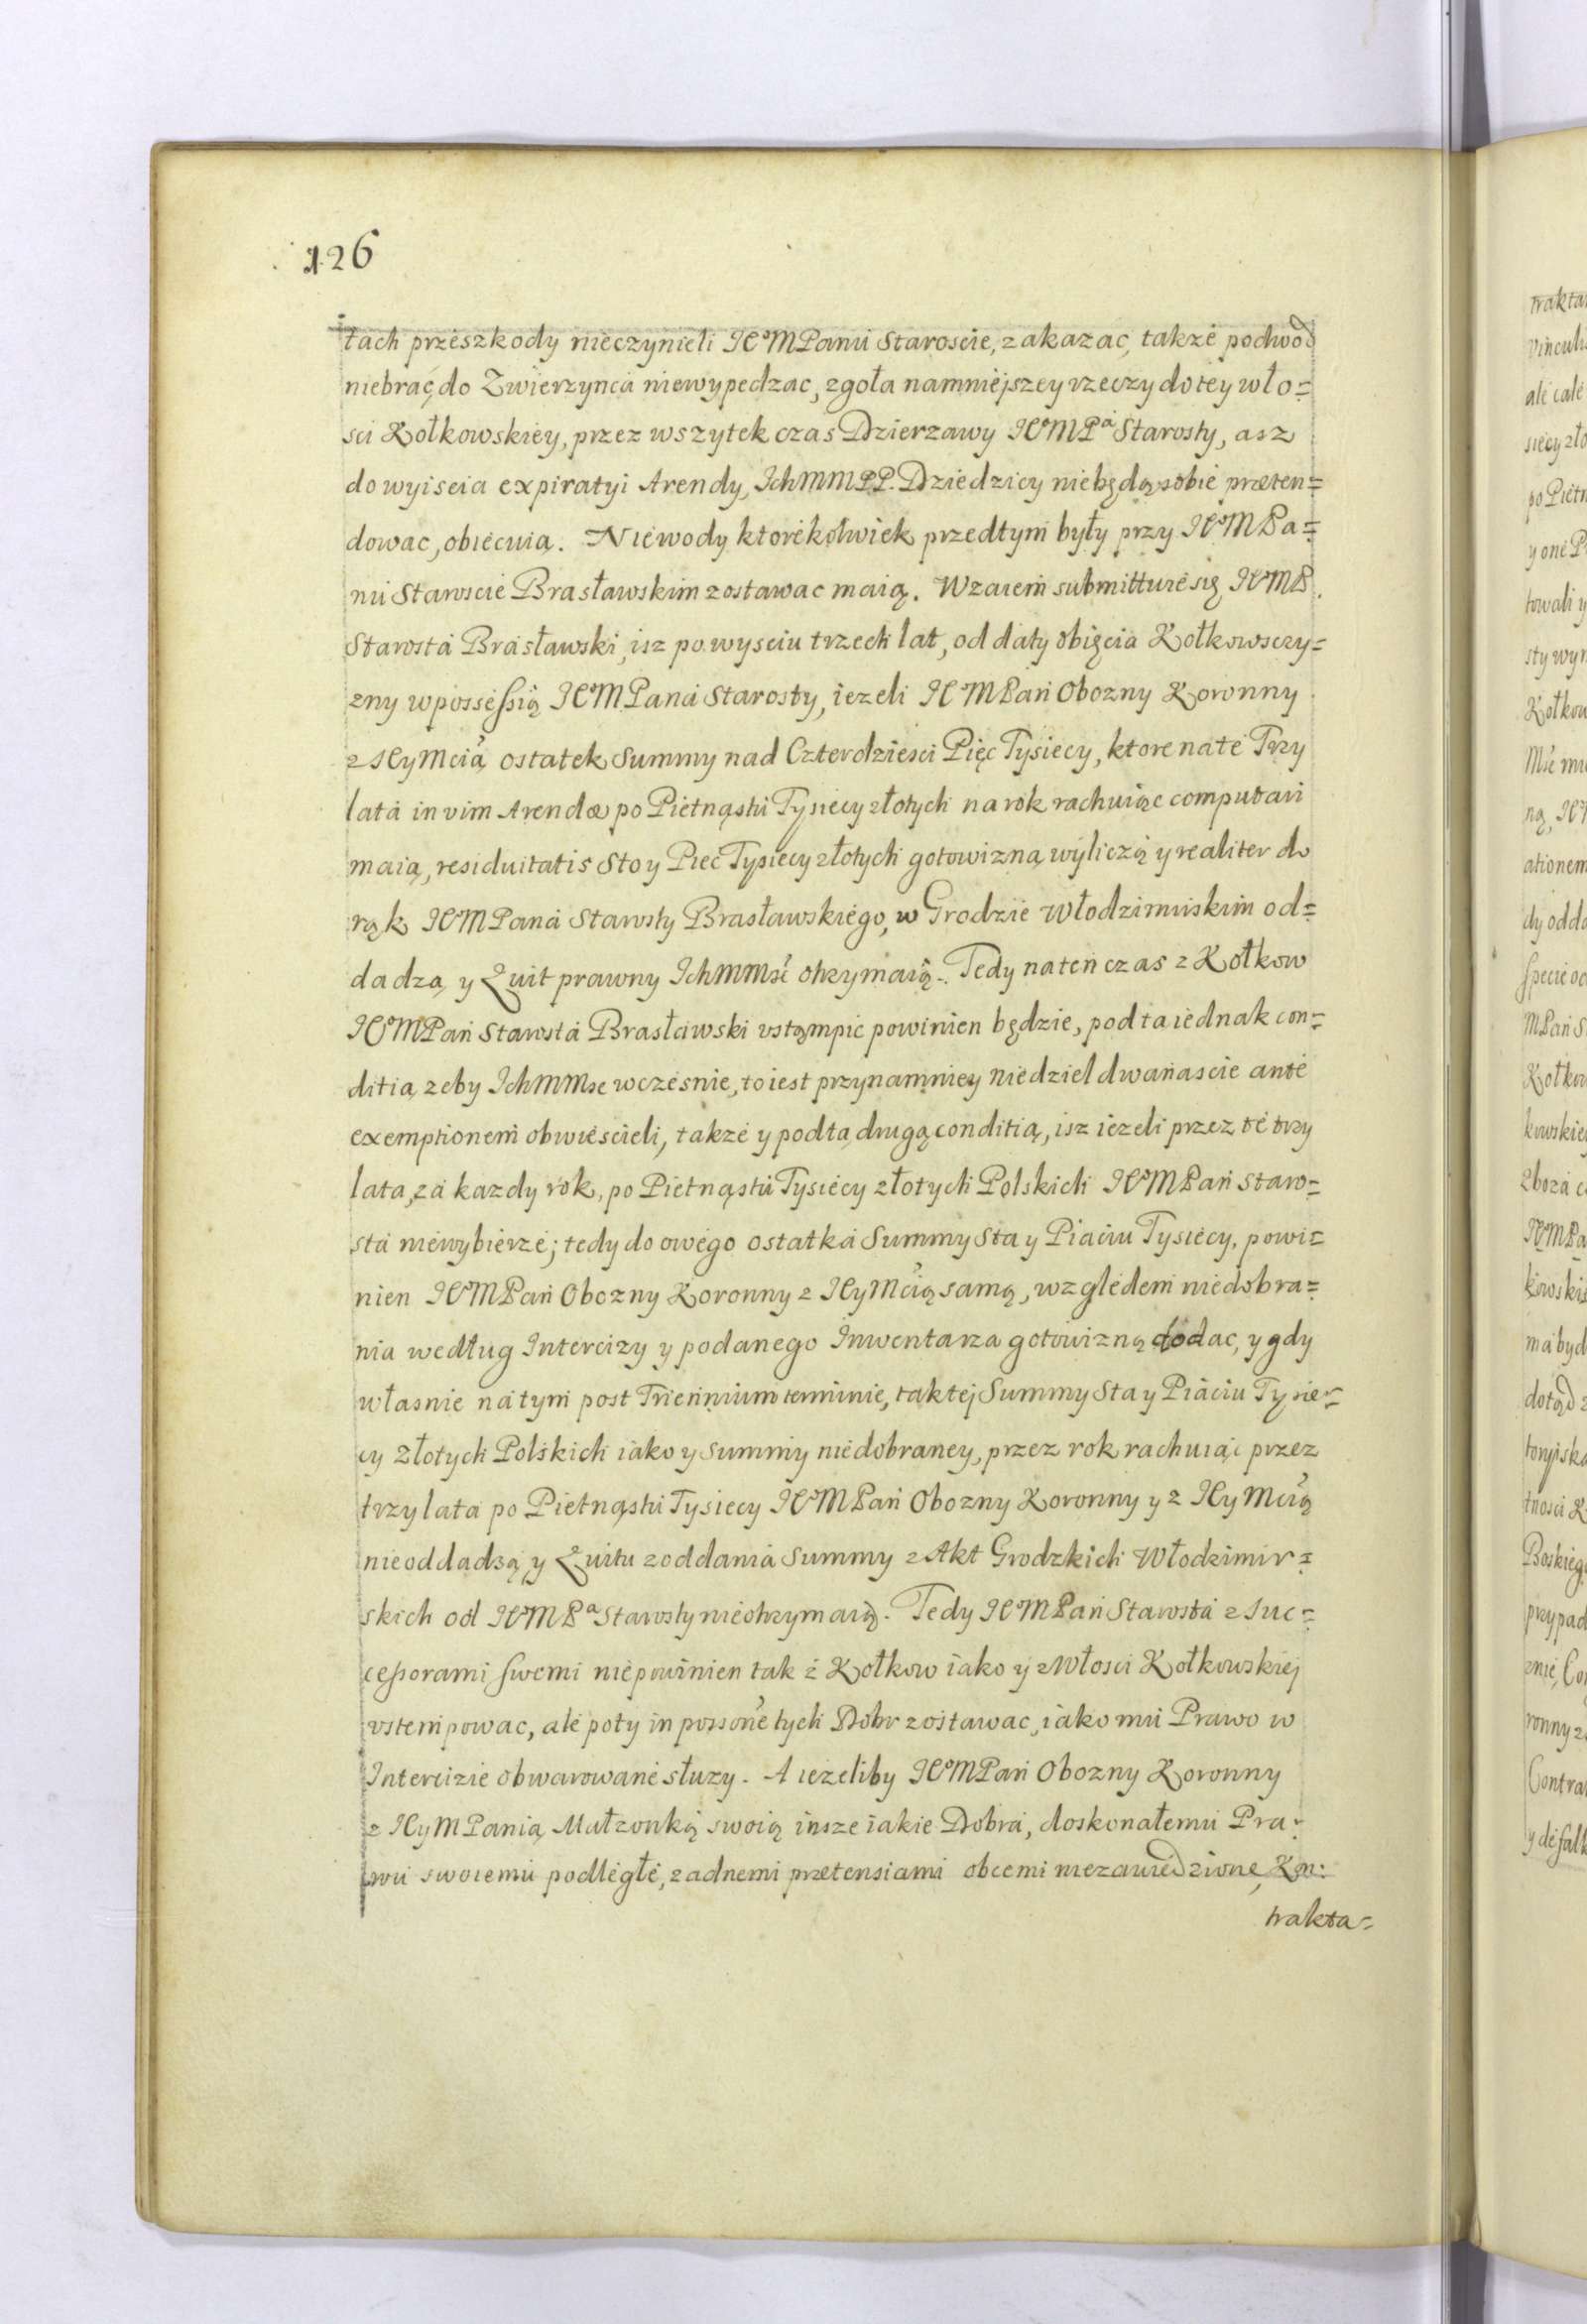 126
tach przeszkody nieczynieli JCoMPanu Staroscie, zakazac, takze podwod
niebrać, do Zwierzynca niewypedzac, zgoła namniejszey rzeczy do tey wło=
sci Kołkowskiey, przez wszytek czas Dzierzawy JCoMPa Starosty, asz
do wyiscia expiratyi Arendy, IchMMPP. Dziedzicy niebędą sobie præten=
dowac, obiecuią. Niewody ktorekolwiek przedtym były przy JCoMPa=
nu Staroscie Brasławskim zostawac maią. Wzaiem submittuie się JCoMP.
Starosta Brasławski, isz po wysciu trzech lat, od daty obięcia Kołkowsczy=
zny wpossessią JCoMPana Starosty, iezeli JCoMPan Obozny Koronny
z JCyMcią ostatek Summy nad Czterdziesci Pięc Tysiecy, ktore na te Trzy
lata in vim Arendæ po Pietnąstu Tysiecy złotych na rok rachuiąc computari
maią, residuitatis Sto y Piec Tysiecy złotych gotowizną wyliczą y realiter do
rąk JCoMPana Starosty Brasławskiego, w Grodzie Włodzimirskim od=
dadzą, y Quit prawny IchMMsć otrzymaią. Tedy na ten czas z Kołkow
JCoMPan Starosta Brasławski vstąmpic powinien będzie, pod ta iednak con=
ditią, zeby IchMMsc wczesnie, to iest przynamniey niedziel dwanascie ante
exemptionem obwiescieli, takze y pod tą drugą conditią, isz iezeli przez te trzy
lata, za kazdy rok, po Pietnąstu Tysiecy złotych Polskich JCoMPan Staro=
sta niewybierze; tedy do owego ostatka Summy Sta y Piaciu Tysiecy, powi=
nien JCoMPan Obozny Koronny z JCyMcią samą, względem niedobra=
nia według Intercizy y podanego Inwentarza gotowizną dodac, y gdy
własnie na tym post Triennium terminie, tak tej Summy Sta y Piaciu Tysie=
cy Złotych Polskich iako y summy niedobraney, przez rok rachuiąc przez
trzy lata po Pietnąstu Tysiecy JCoMPan Obozny Koronny y z JCyMcią
nieoddadzą, y Quitu z oddania Summy z Akt Grodzkich Włodzimir=
skich od JCoMPa Starosty nieotrzymaią. Tedy JCoMPan Starosta z Suc=
cessorami swemi niepowinien tak z Kołkow iako y z Włosci Kołkowskiej
vstempowac, ale poty in possone tych Dobr zostawac, iako mu Prawo w
Intercizie obwarowane słuzy. A iezeliby JCoMPan Obozny Koronny
z JCyMPanią Małzonką swoią insze iakie Dobra, doskonałemu Pra=
wu swoiemu podległe, zadnemi prætensiami obcemi niezawiedzione, Kon:
trakta=